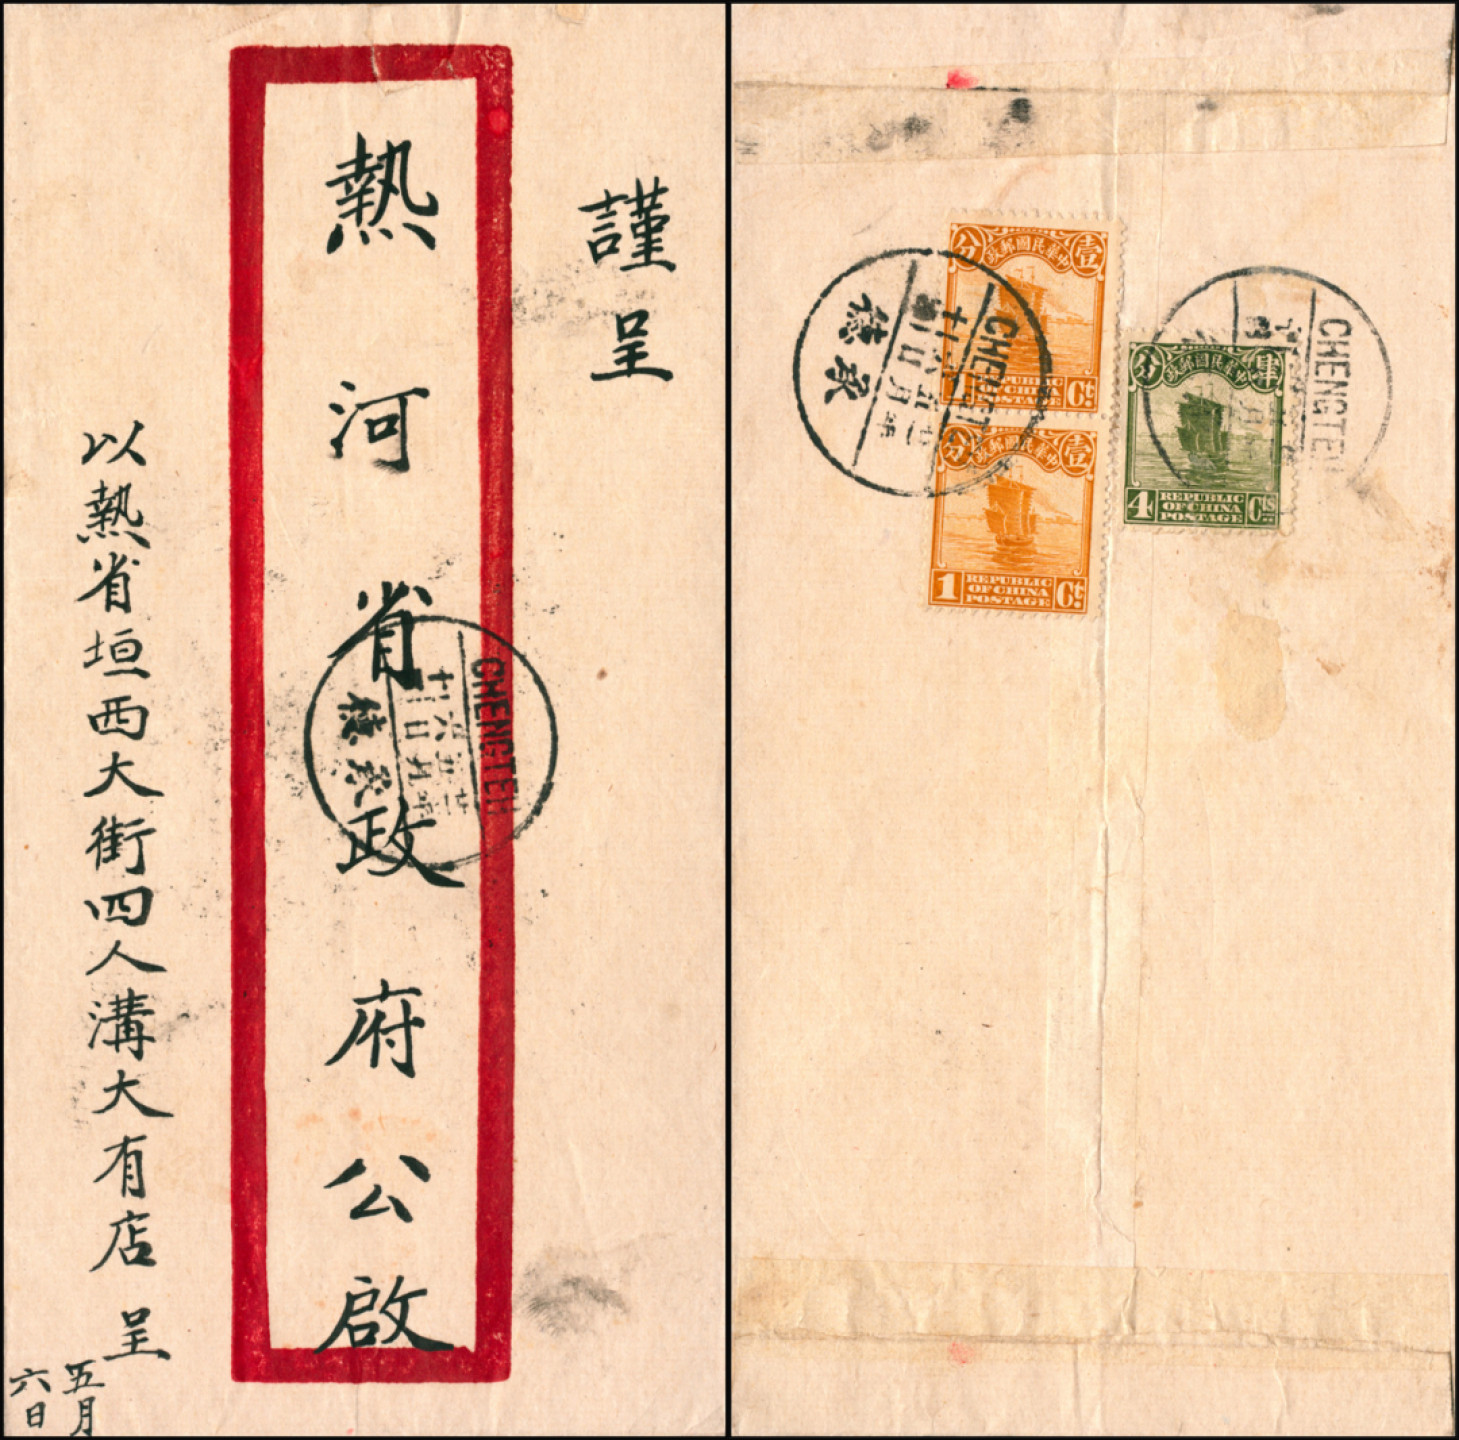 謹呈
熱河省政府公啟
以熱省垣西大街四人溝大有店呈
五月
六日
CHENGTEH
承德
壹 中華民國郵政 分
REPUBLIC
OF CHINA
POSTAGE
Ct.
壹 中華民國郵政 分
1
REPUBLIC
OF CHINA
POSTAGE
Ct.
肆 中華民國郵政 分
4
REPUBLIC
OF CHINA
POSTAGE
Cts
CHENGTEH
承德
CHENGTEH